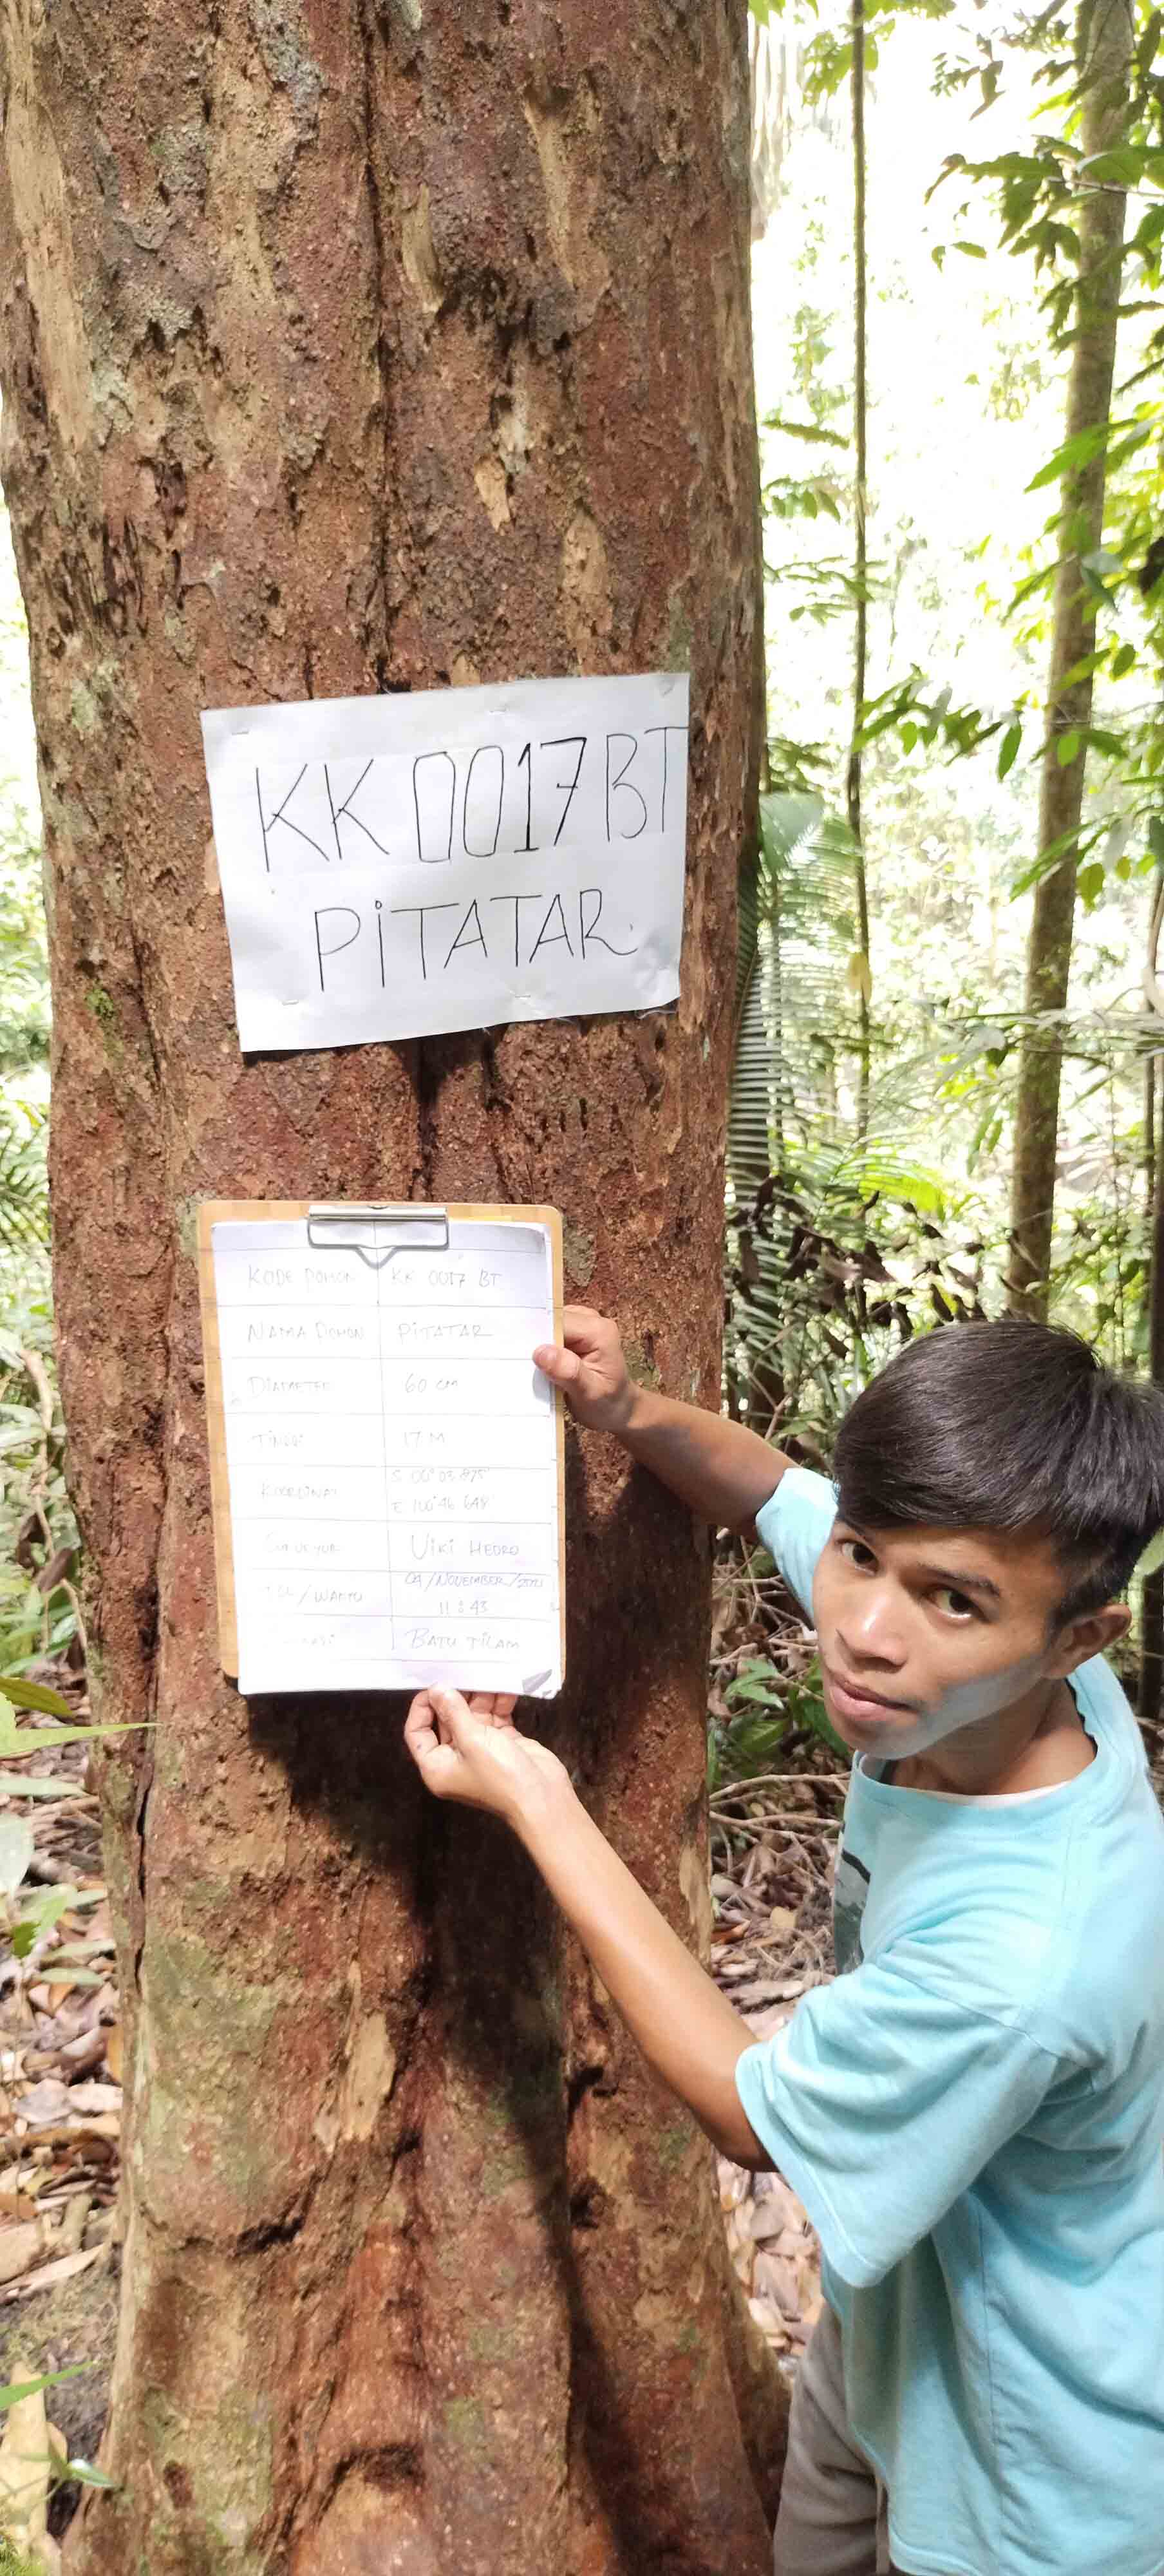 KK 0017 BT
PiTATAR
KODE POHON KK 0017 BT
NAMA POHON PITATAR
DIAMETER 60 cm
TiNGGi 17 M
KOORDINAT S 00° 03' 875"
E 100° 46' 648"
SURVEYOR ViKi HEDRO
/ WAKTU 04/NOVEMBER/2021
11 : 43
BATU TiLAM